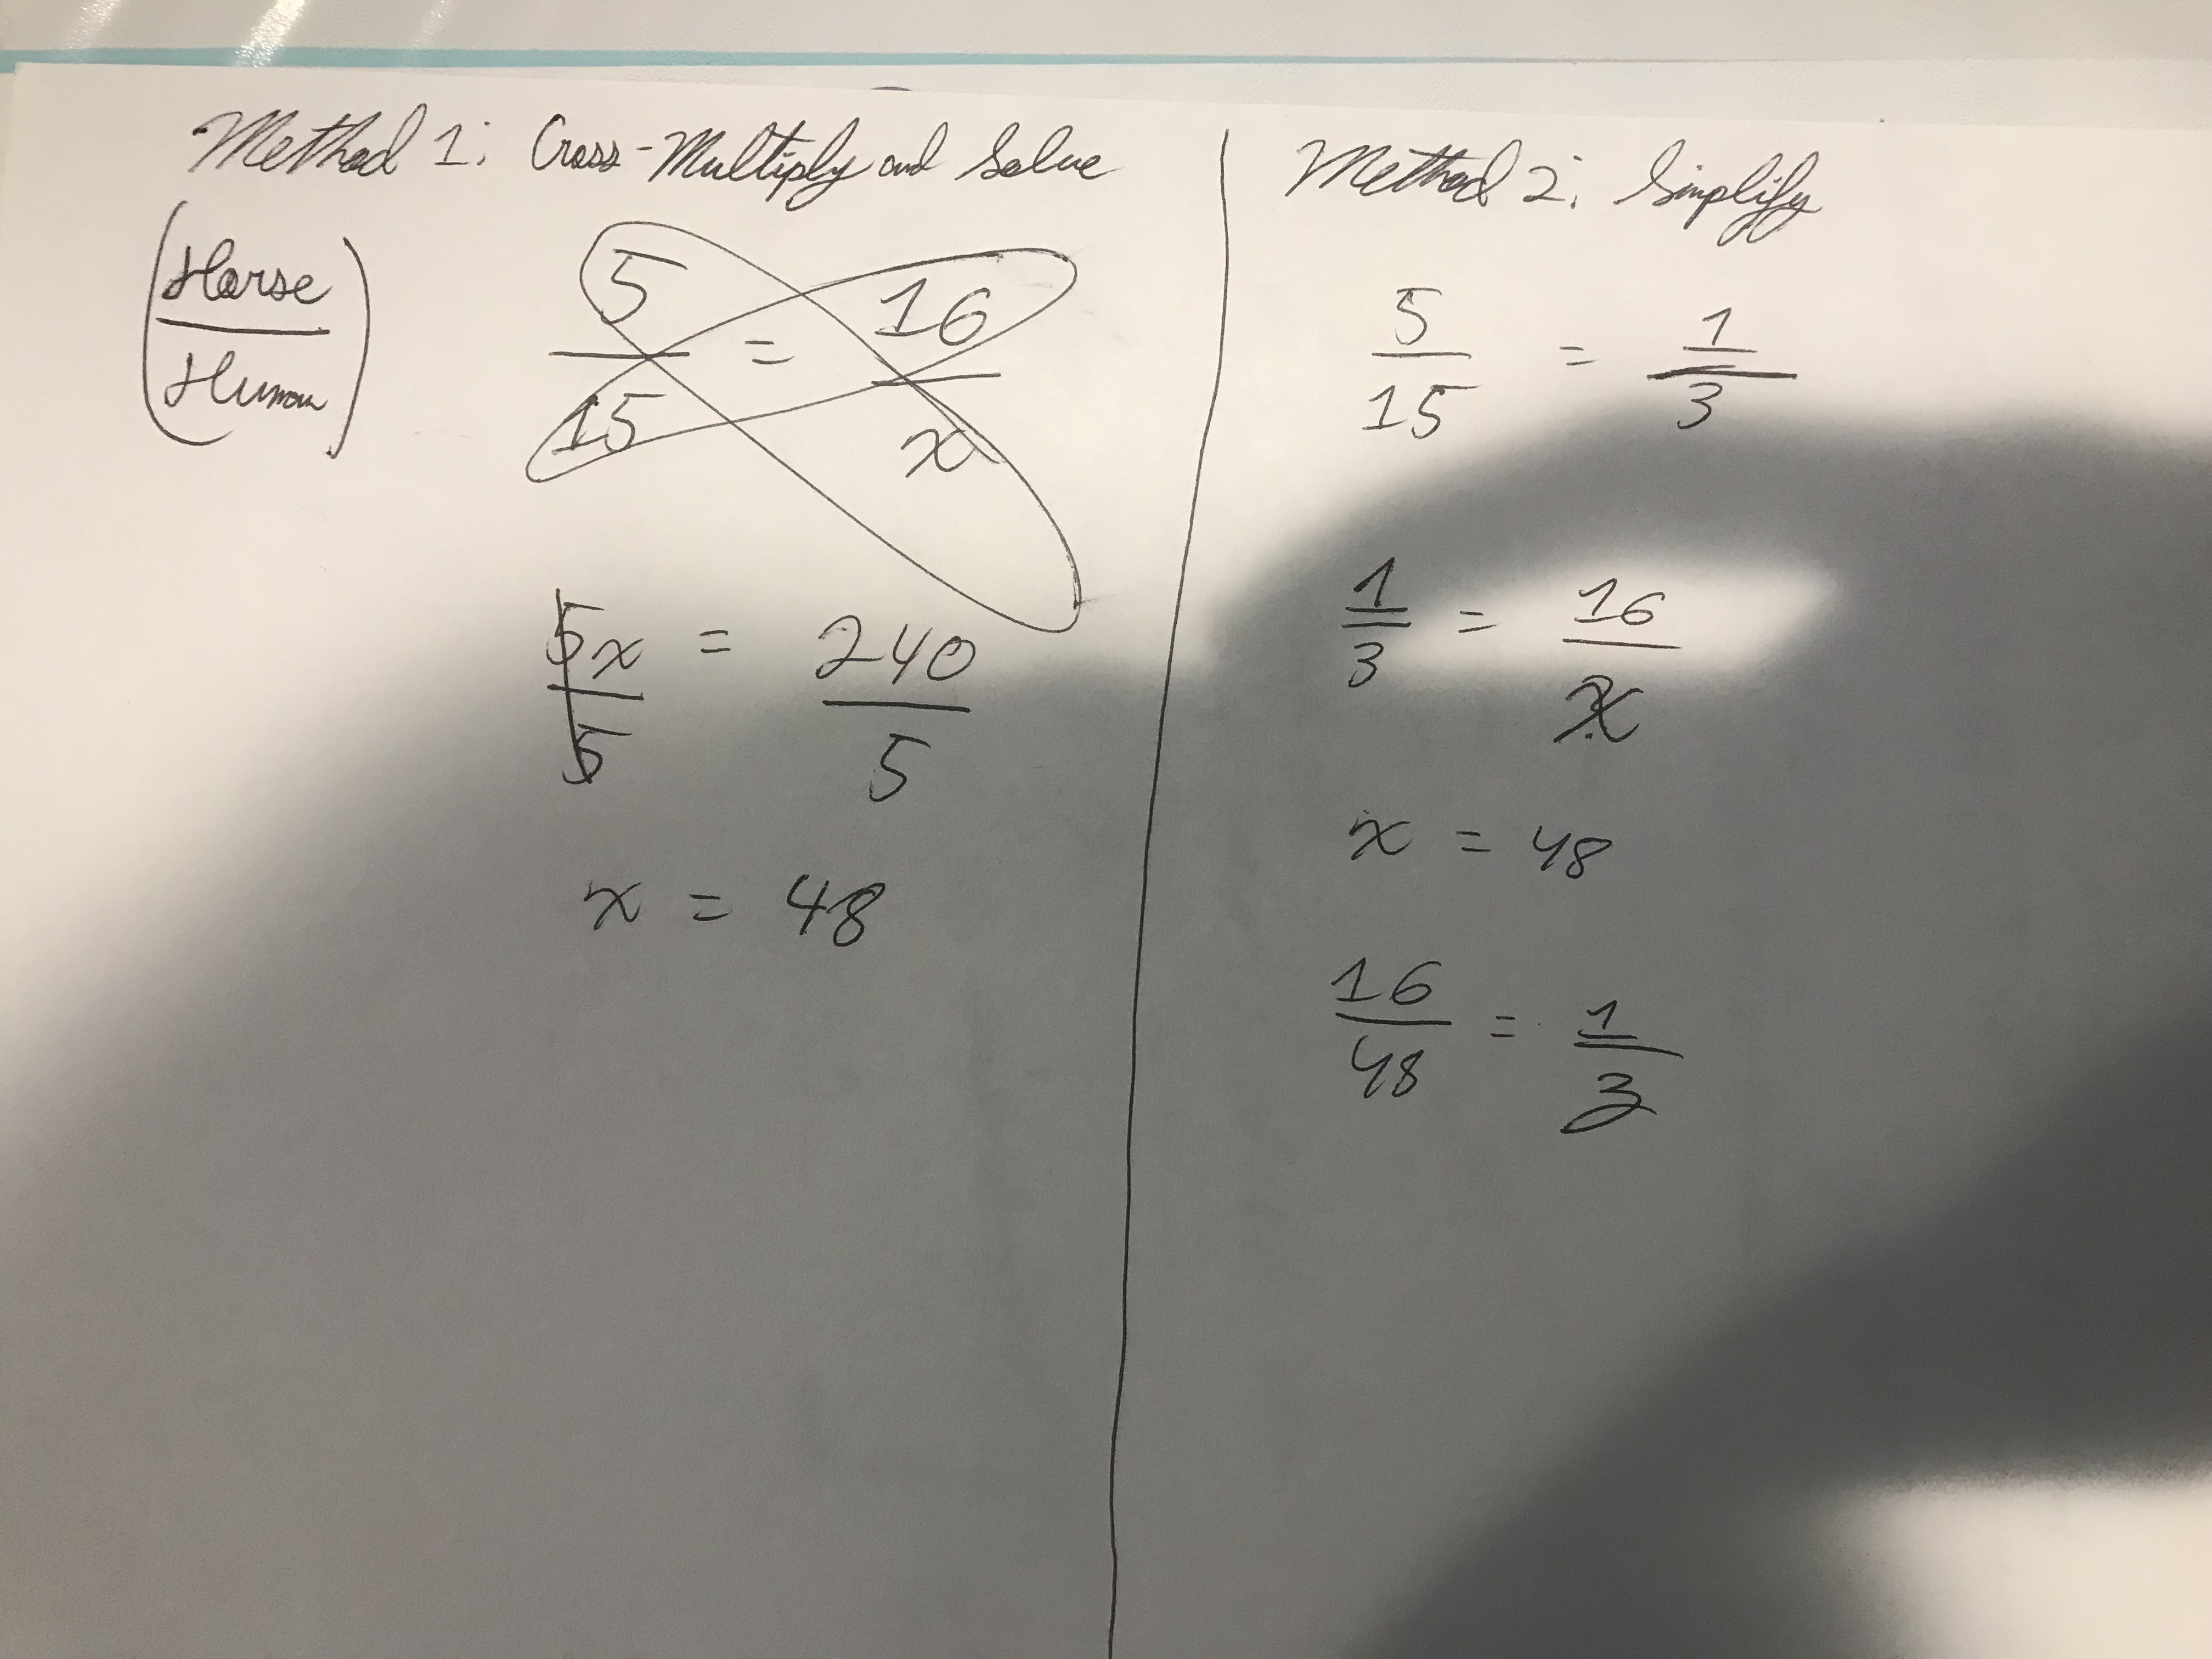 Method 1: Cross-Multiply and Solve
(Horse / Human) 5/15 = 16/x
5x/5 = 240/5
x = 48
Method 2: Simplify
5/15 = 1/3
1/3 = 16/x
x = 48
16/48 = 1/3